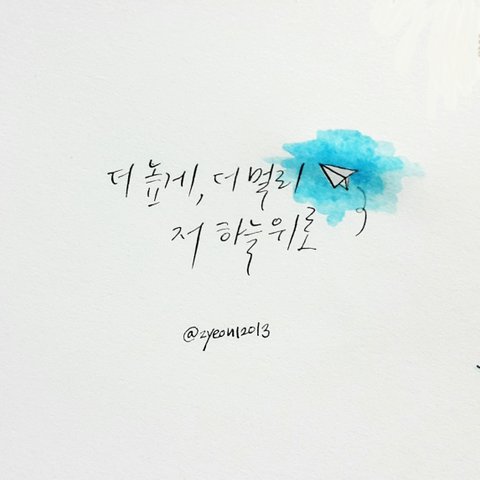 더 높게, 더 멀리
저 하늘위로
@zyeon12013